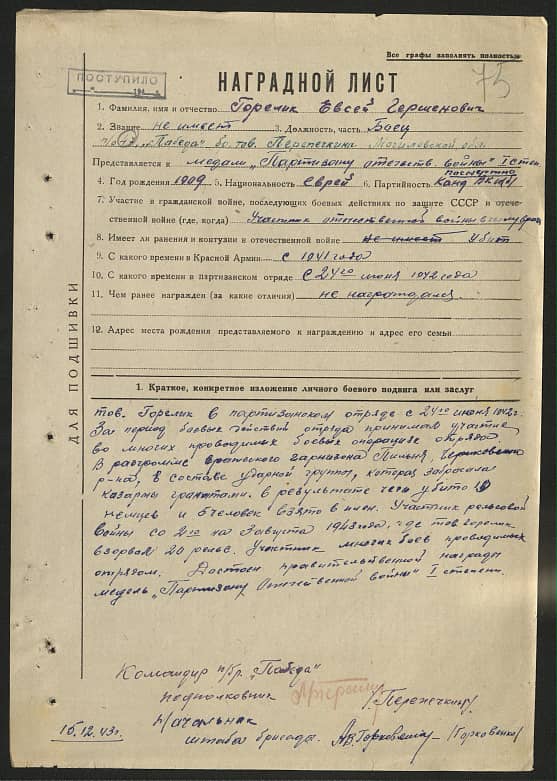 Все графы заполнять полностью
ПОСТУПИЛО
75
НАГРАДНОЙ ЛИСТ
1. Фамилия, имя и отчество Горелик Евсей Гершенович
2. Звание не имеет 3. Должность, часть Боец
п/о "Победа" бр. тов. Перепечкина Могилевской обл.
Представляется к медали "Партизану отечеств. войны" I степ.
посмертно
4. Год рождения 1909 5. Национальность Еврей 6. Партийность Канд ВКП(б)
7. Участие в гражданской войне, последующих боевых действиях по защите СССР и отече-
ственной войне (где, когда) Участник отечественной войны в тылу врага
8. Имеет ли ранения и контузии в отечественной войне не имеет убит
9. С какого времени в Красной Армии с 1941 года
10. С какого времени в партизанском отряде с 24го июня 1942 года
11. Чем ранее награжден (за какие отличия) не награждался.
12. Адрес места рождения представляемого к награждению и адрес его семьи
ДЛЯ ПОДШИВКИ
1. Краткое, конкретное изложение личного боевого подвига или заслуг
тов. Горелик в партизанском отряде с 24го июня 1942г.
За период боевых действий отряда принимал участие
во многих проводимых боевых операциях отряда.
В разгроме вражеского гарнизона
р-на, в составе ударной группы, которая забросала
казармы гранатами. в результате чего убито 19
немцев и 5 человек взято в плен. Участник рельсовой
войны со 2го на 3 августа 1943 года, где тов Горелик
взорвал 20 рельс. Участник многих боев проводимых
отрядом. Достоин правительственной награды
медель "Партизану Отечественной войны" I степени.
Командир п/бр. "Победа"
подполковник /Перепечкин/
Начальник
15.12.43г. штаба бригады. /Горковенко/